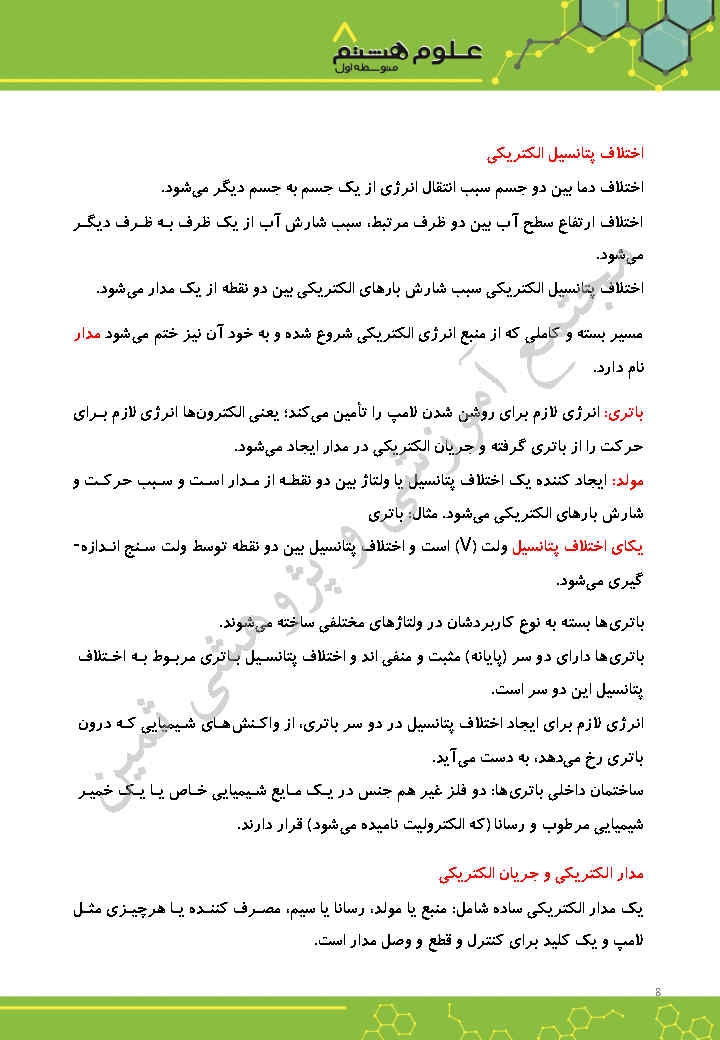 علوم هشتم ۸
متوسطه اول
اختلاف پتانسیل الکتریکی
اختلاف دما بین دو جسم سبب انتقال انرژی از یک جسم به جسم دیگر می‌شود.
اختلاف ارتفاع سطح آب بین دو ظرف مرتبط، سبب شارش آب از یک ظرف به ظرف دیگر
می‌شود.
اختلاف پتانسیل الکتریکی سبب شارش بارهای الکتریکی بین دو نقطه از یک مدار می‌شود.
مسیر بسته و کاملی که از منبع انرژی الکتریکی شروع شده و به خود آن نیز ختم می‌شود مدار
نام دارد.
باتری: انرژی لازم برای روشن شدن لامپ را تأمین می‌کند؛ یعنی الکترون‌ها انرژی لازم برای
حرکت را از باتری گرفته و جریان الکتریکی در مدار ایجاد می‌شود.
مولد: ایجاد کننده یک اختلاف پتانسیل یا ولتاژ بین دو نقطه از مدار است و سبب حرکت و
شارش بارهای الکتریکی می‌شود. مثال: باتری
یکای اختلاف پتانسیل ولت (V) است و اختلاف پتانسیل بین دو نقطه توسط ولت سنج اندازه-
گیری می‌شود.
باتری‌ها بسته به نوع کاربردشان در ولتاژهای مختلفی ساخته می‌شوند.
باتری‌ها دارای دو سر (پایانه) مثبت و منفی اند و اختلاف پتانسیل باتری مربوط به اختلاف
پتانسیل این دو سر است.
انرژی لازم برای ایجاد اختلاف پتانسیل در دو سر باتری، از واکنش‌های شیمیایی که درون
باتری رخ می‌دهد، به دست می‌آید.
ساختمان داخلی باتری‌ها: دو فلز غیر هم جنس در یک مایع شیمیایی خاص یا یک خمیر
شیمیایی مرطوب و رسانا (که الکترولیت نامیده می‌شود) قرار دارند.
مدار الکتریکی و جریان الکتریکی
یک مدار الکتریکی ساده شامل: منبع یا مولد، رسانا یا سیم، مصرف کننده یا هرچیزی مثل
لامپ و یک کلید برای کنترل و قطع و وصل مدار است.
مجتمع آموزشی و پژوهشی ثمین
8